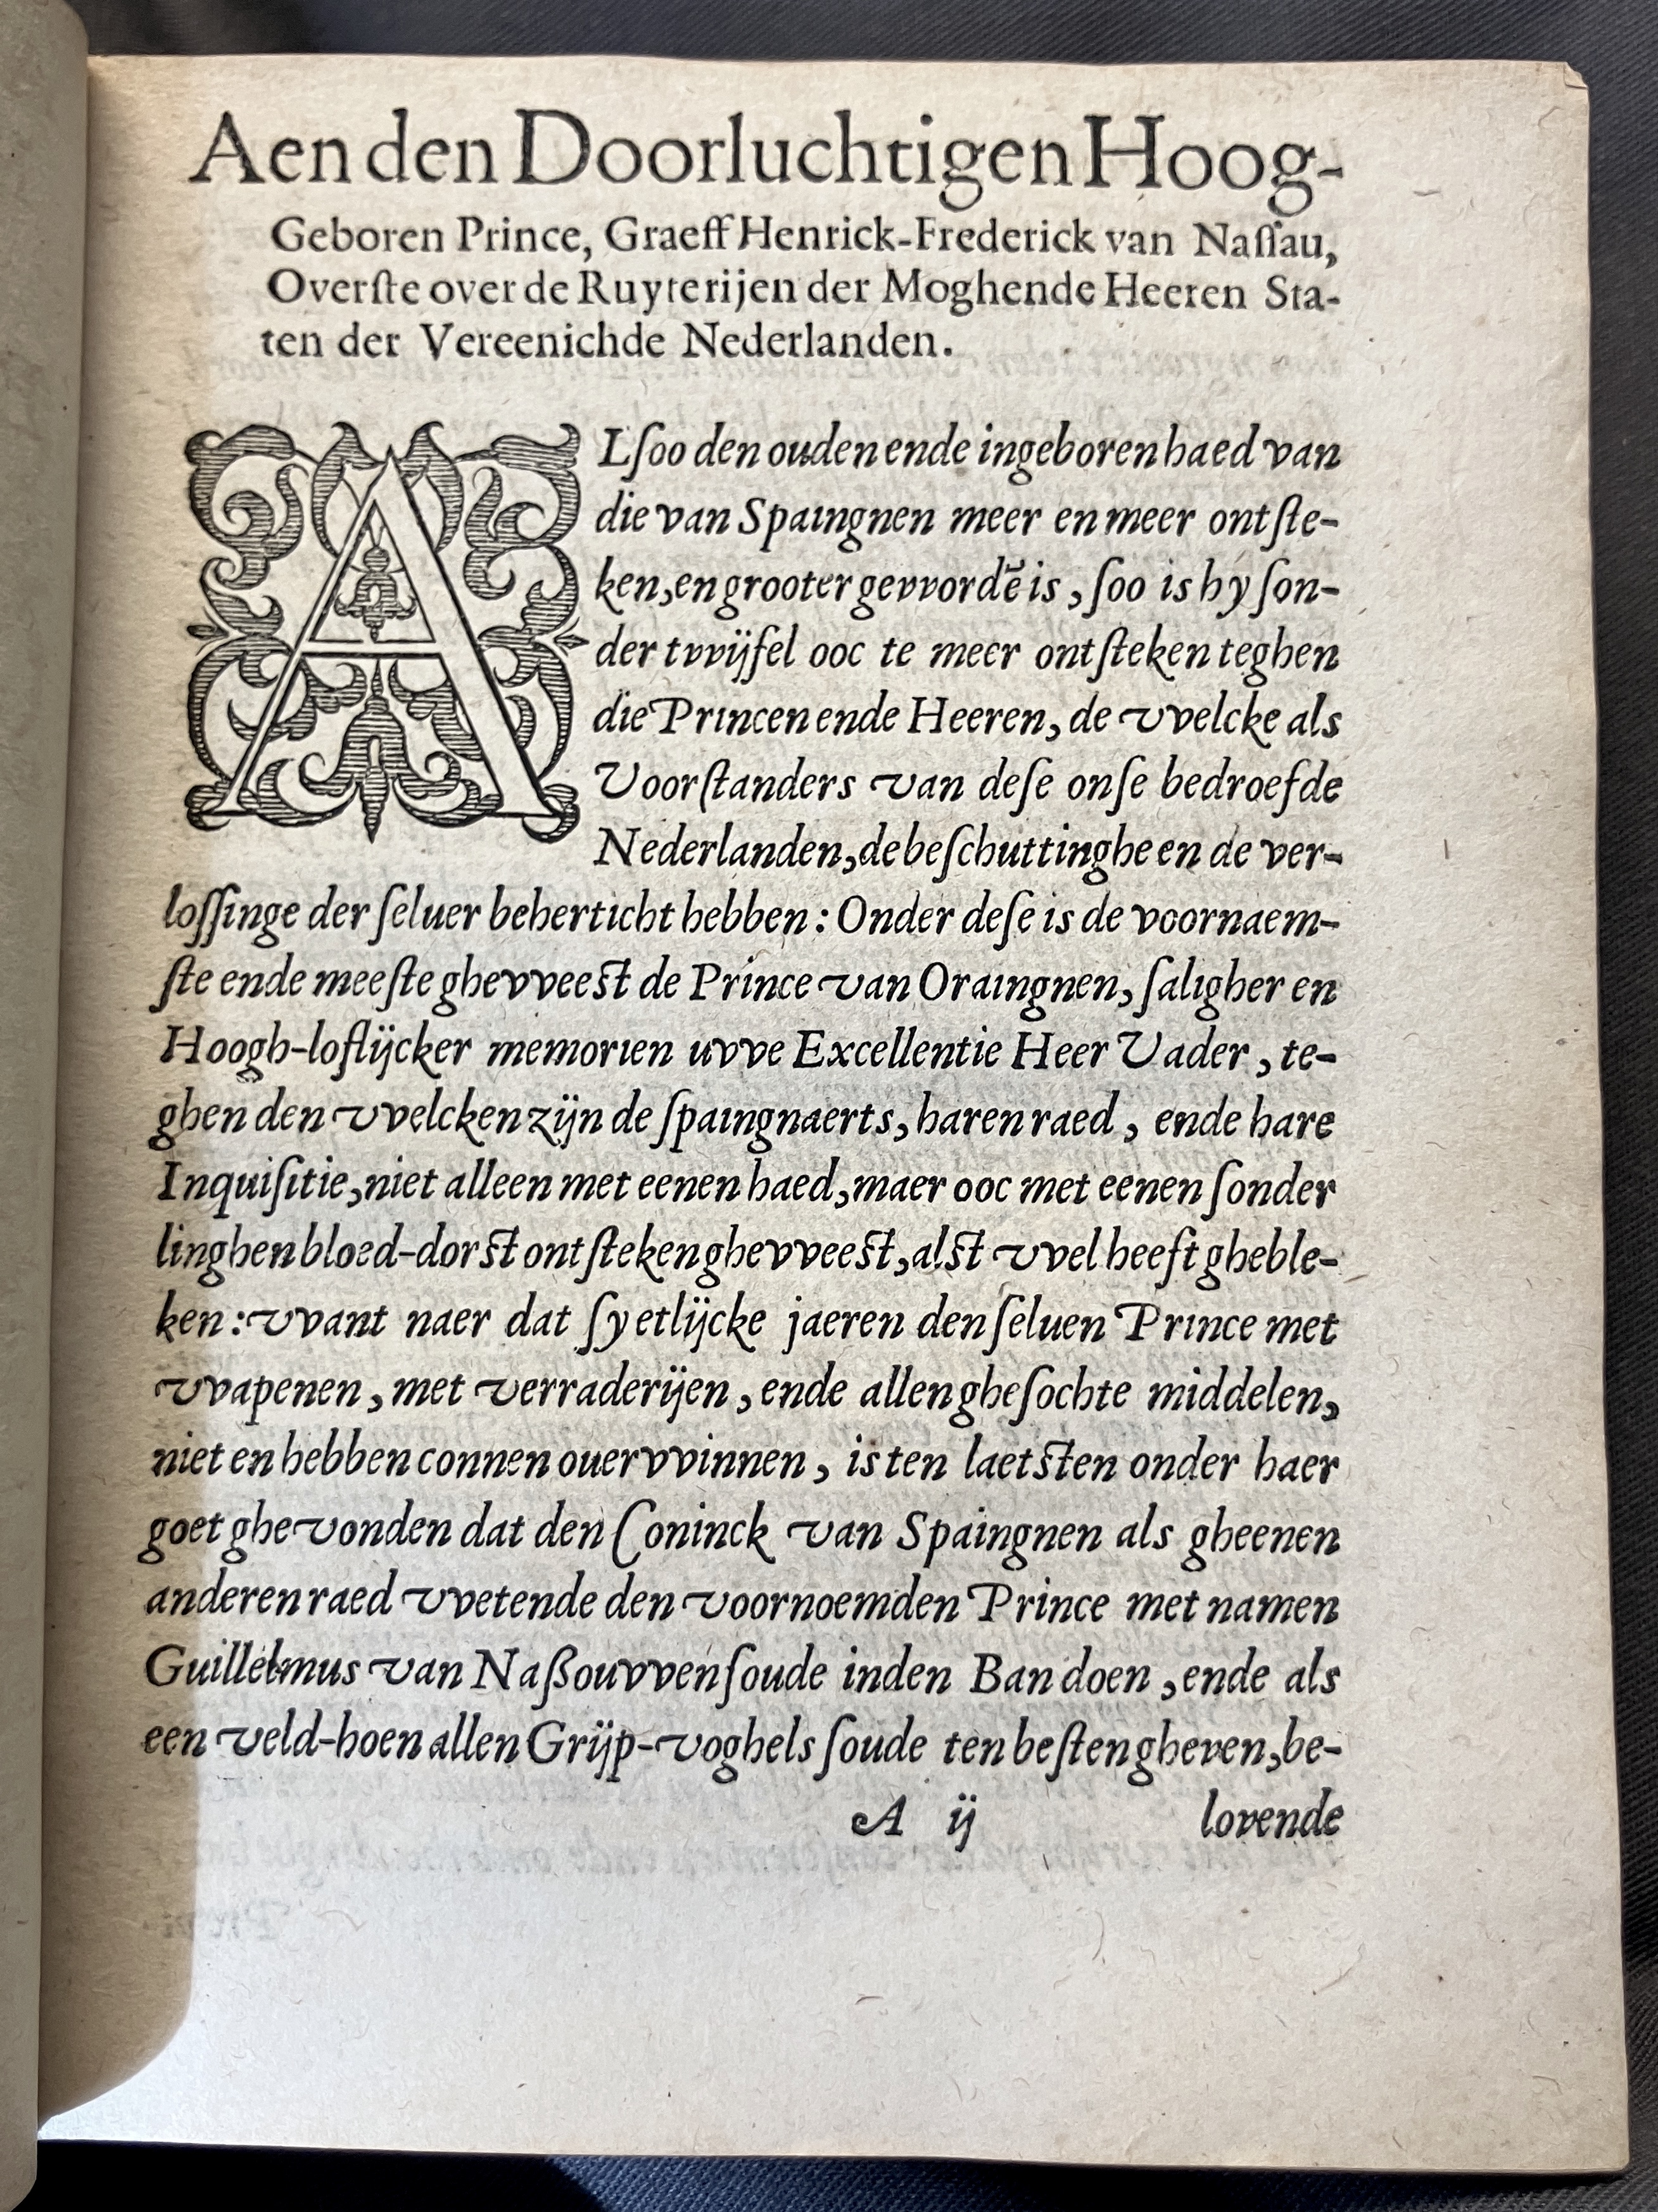 Aen den Doorluchtigen Hoog-
Geboren Prince, Graeff Henrick-Frederick van Naſſau,
Overſte over de Ruyterijen der Moghende Heeren Sta-
ten der Vereenichde Nederlanden.
ALſoo den ouden ende ingeboren haed van
die van Spaingnen meer en meer ontſte-
ken, en grooter gevvordē is, ſoo is hy ſon-
der tvvijfel ooc te meer ontſteken teghen
die Princen ende Heeren, de vvelcke als
Voorſtanders van deſe onſe bedroefde
Nederlanden, de beſchuttinghe en de ver-
loſſinge der ſeluer beherticht hebben: Onder deſe is de voornaem-
ſte ende meeſte ghevveeſt de Prince van Oraingnen, ſaligher en
Hoogh-loflijcker memorien uvve Excellentie Heer Vader, te-
ghen den vvelcken zijn de ſpaingnaerts, haren raed, ende hare
Inquiſitie, niet alleen met eenen haed, maer ooc met eenen ſonder
linghen bloed-dorſt ontſteken ghevveeſt, alſt vvel heeft gheble-
ken: vvant naer dat ſy etlijcke jaeren den ſeluen Prince met
vvapenen, met verraderijen, ende allen gheſochte middelen,
niet en hebben connen ouervvinnen, is ten laetſten onder haer
goet ghevonden dat den Coninck van Spaingnen als gheenen
anderen raed vvetende den voornoemden Prince met namen
Guillelmus van Naßouvven ſoude inden Ban doen, ende als
een veld-hoen allen Grijp-voghels ſoude ten beſten gheven, be-
A ij lovende